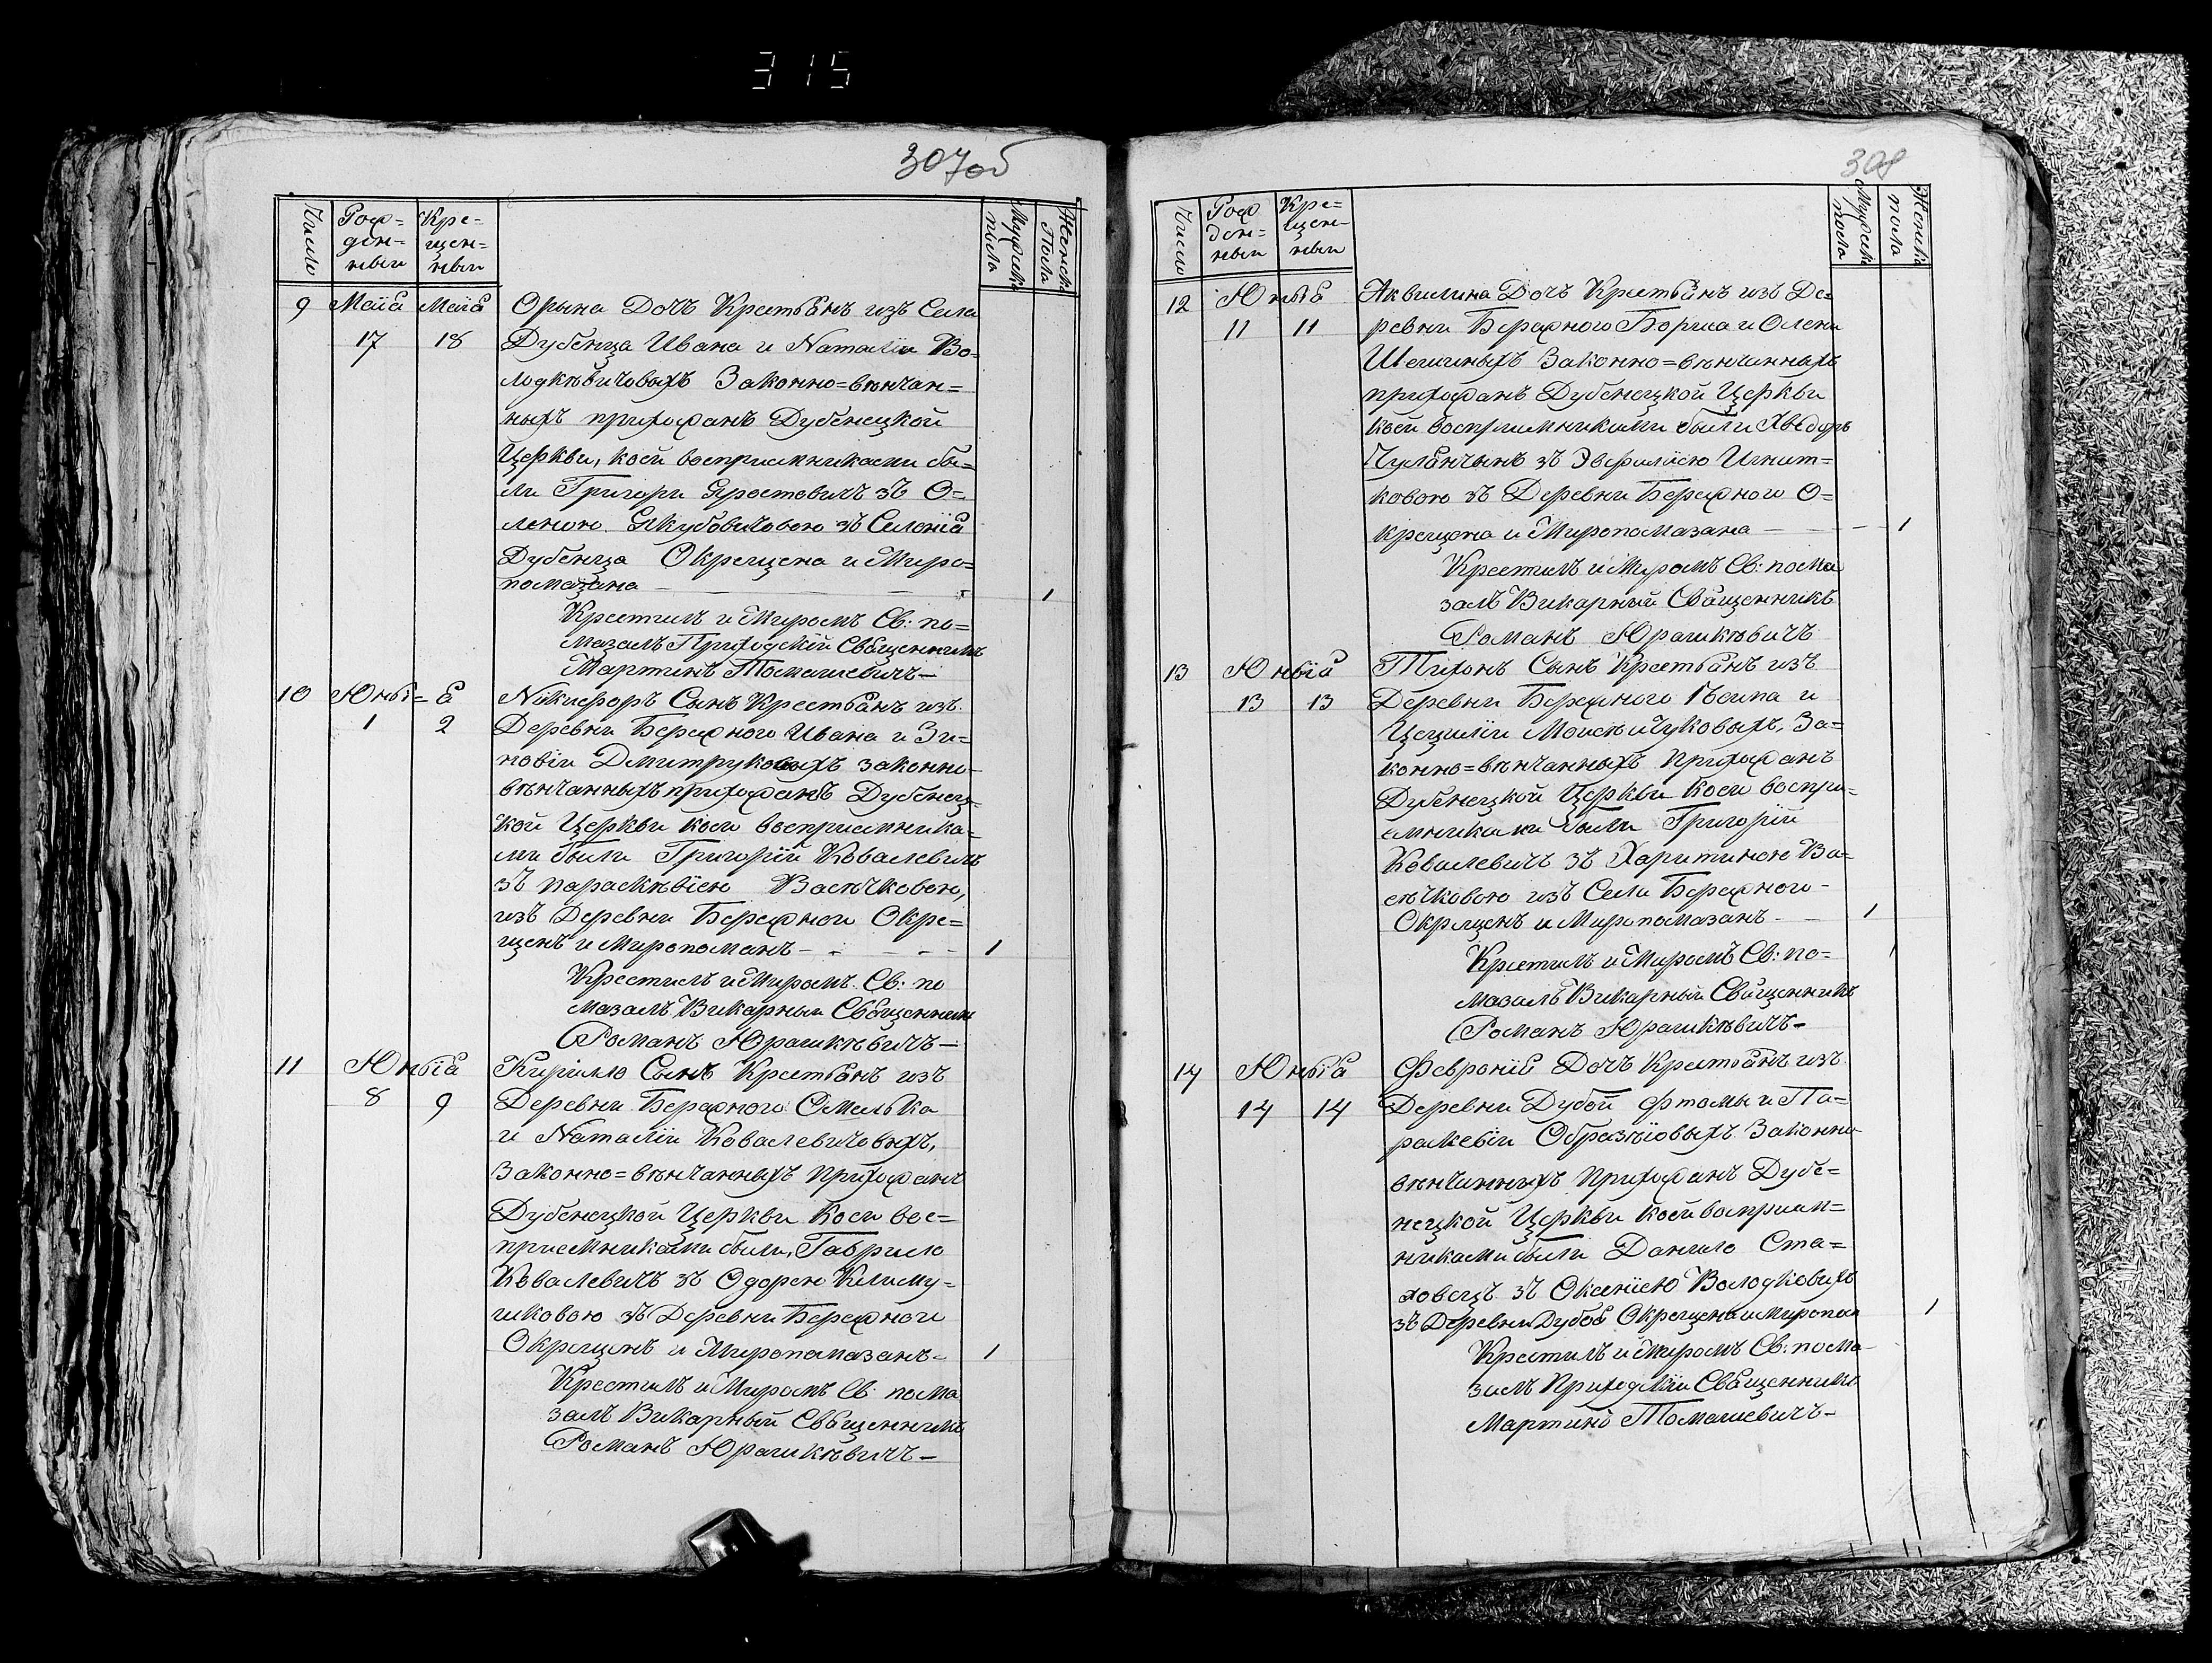 315
307об
Число
Рож=
ден=
ныи
Кре=
щен=
ныи
Мужеска
пола
Женска
Пола
9 Маіѧ Маіѧ Орына Дочь Крестьѧнъ изъ Села
17 18 Дубенца Ивана и Nаталіи Во=
лодкѣвичовыхъ Законно=вѣнчан=
ныхъ прихожанъ Дубенецкой
Церкви, коей воспріемниками бы=
ли Григори Хростовичъ зъ О=
леною Якубовичовою зъ Селеніѧ
Дубенца Окрещена и Миро=
помазана — 1
Крестилъ и Миромъ Св: по=
мазалъ Приходскій Свѧщенникъ
Мартинъ Томашевичъ —
10 Юны=ѧ Nикифоръ Сынъ Крестьѧнъ изъ
1 2 Деревни Бережного Ивана и Зи=
новіи Дмитруковыхъ законно=
вѣнчанныхъ прихожанъ Дубенец=
кой Церкви коей воспріемника=
ми были Григорій Ковалевичъ
зъ параскѣвіею Васѣчковою,
изъ Деревни Бережнои Окре=
щенъ и Миропоманъ — 1
Крестилъ и Миромъ Св: по
мазалъ Викарныи Свѧщенникъ
Романъ Юрашкѣвичъ —
11 Юныіѧ Кирилло Сынъ Крестьѧнъ изъ
8 9 Деревни Бережного Омелька
и Nаталіи Ковалевичовыхъ,
Законно=вѣнчанныхъ Прихожанъ
Дубенецкой Церкви Коеи вос=
приемниками были, Гаврило
Ковалевичъ зъ Одорею Климу=
шковою зъ Деревни Бережнои
Окрещенъ и Миропомазанъ = 1
Крестилъ и Миромъ Св: пома
залъ Викарный Свѧщенникъ
Романъ Юрашкѣвичъ —
308
Число
Рож
ден=
ныи
Кре=
щен=
ныи
Мужеска
пола
Женска
пола
12 Юныѧ Аквилина Дочь Крестьѧнъ изъ Де=
11 11 ревни Бережного Бориса и Олены
Шешиныхъ Законно=вѣнчанныхъ
прихожанъ Дубенецкой Церкви
коей воспріимниками были Хведоръ
зъ Эвфиміею Игнит=
ковою зъ Деревни Бережного О=
крещена и Миропомазана — 1
Крестилъ и Миромъ Св: пома
залъ Викарный Свѧщенникъ
Романъ Юрашкѣвичъ
13 Юныіѧ Тихонъ Сынъ Крестьѧнъ изъ
13 13 Деревни Бережного и
Цецыліи Моисѣйчуковыхъ, За=
конно=вѣнчанныхъ Прихожанъ
Дубенецкой Церкви Коеи воспри=
емниками были Григорій
Ковалевичъ зъ Харитиною Ва=
сѣчковою изъ Села Бережного —
Окрещенъ и Миропомазанъ — 1
Крестилъ и Миромъ Св: по=
мазалъ Викарный Свѧщенникъ
Романъ Юрашкѣвичъ —
14 Юныіѧ Февроніѧ Дочь Крестьѧнъ изъ
14 14 Деревни Дубой Фтомы и Па=
раскевіи Образѣіовыхъ Законно
вѣнчанныхъ Прихожанъ Дубе=
нецкой Церкви Коей восприем=
никами были Данило Ста=
ховецъ зъ Оксеніею Володковихъ
зъ Деревни Дубоѧ Окрещена и Миропом 1
Крестилъ и Миромъ Св: пома
залъ Приходскіи Свѧщенникъ
Мартинъ Томашевичъ —